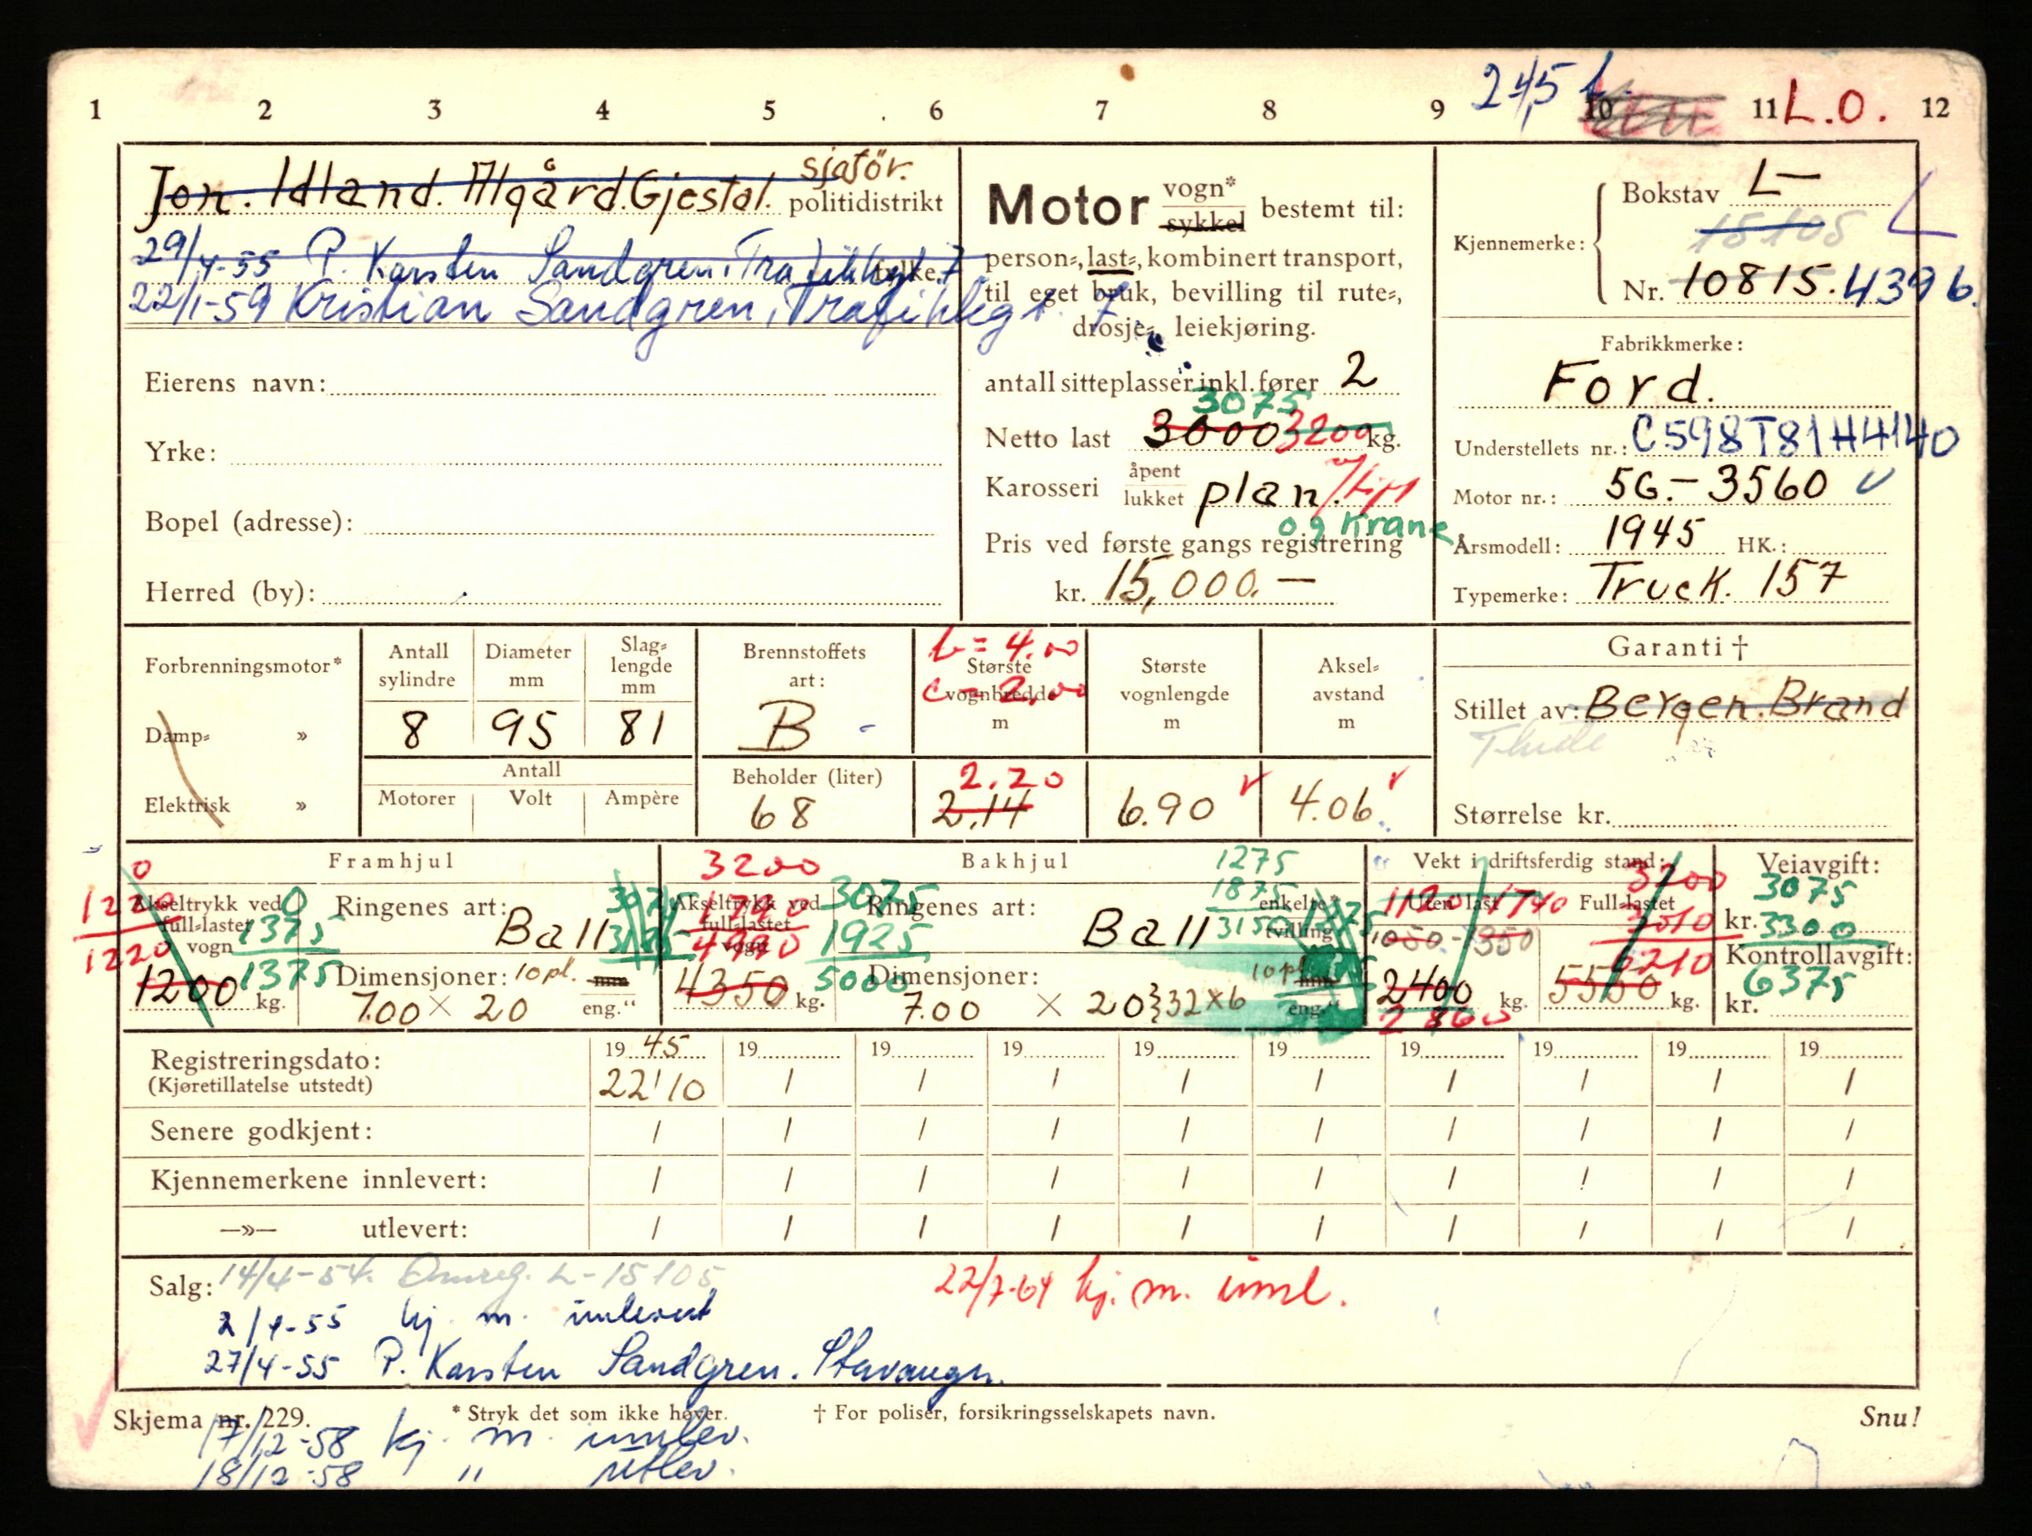 1 2 3 4 5 6 7 8 9 10 11 12
24,5 L.O.
Jon. Idland. Ålgård. Gjestal. sjafør. politidistrikt
29/4-55 P. Karsten Sandgren, Trafikkgt. 7
22/1-59 Kristian Sandgren, Trafikkgt. 7
Eierens navn:
Yrke:
Bopel (adresse):
Herred (by):
Motor vogn* sykkel bestemt til:
person-, last-, kombinert transport,
til eget bruk, bevilling til rute-,
drosje-, leiekjøring.
antall sitteplasser inkl. fører 2
3075
Netto last 3000 3200 kg.
Karosseri åpent lukket plan. m/tipp
og Krane
Pris ved første gangs registrering
kr. 15,000.—
Kjennemerke: Bokstav L—
15105
Nr. 10815. 4396.
Fabrikkmerke:
Ford.
Understellets nr.: C598T81H4140
Motor nr.: 5G.-3560
Årsmodell: 1945 HK.:
Typemerke: Truck. 157
Forbrenningsmotor*
Damp- »
Elektrisk »
Antall sylindre
8
Diameter mm
95
Slag-lengde mm
81
Antall
Motorer Volt Ampère
Brennstoffets art:
B
Beholder (liter)
68
b = 4.00
Største vognbredde m
c = 2,00
2.20
2.14
Største vognlengde m
6.90
Aksel-avstand m
4.06
Garanti †
Stillet av: Bergen. Brand
Størrelse kr.
Framhjul
Akseltrykk ved full-lastet vogn
0
1220
1220
0
1375
1375
1200 kg.
Ringenes art: Ball
3075
Dimensjoner: 10 pl. mm
7.00 × 20 eng."
Bakhjul
3200
Akseltrykk ved full-lastet vogn
1790
4990
3075
1925
5000
4350 kg.
Ringenes art: Ball
1275
1875
3150
enkelte* tvilling
Dimensjoner: 10 pl. mm
7.00 × 20 } 32 x 6 eng."
Vekt i driftsferdig stand:
Uten last Full-lastet
1120 1740
1050 - 1350
2400 kg.
2860
3200
3010
6210
5550 kg.
Veiavgift:
3075
kr. 3300
Kontrollavgift:
6375
kr.
Registreringsdato: 19 45 19 19 19 19 19 19 19 19 19
(Kjøretillatelse utstedt) 22/10 / / / / / / / / /
Senere godkjent: / / / / / / / / / /
Kjennemerkene innlevert: / / / / / / / / / /
—»— utlevert: / / / / / / / / / /
Salg: 14/4-54. Omreg. L-15105
22/7-64 kj. m. innl.
2/4-55 kj. m. innlevert
27/4-55 P. Karsten Sandgren. Stavanger.
Skjema nr. 229. * Stryk det som ikke høver. † For poliser, forsikringsselskapets navn. Snu!
17/12-58 kj. m. innlev.
18/12-58 " utlev.